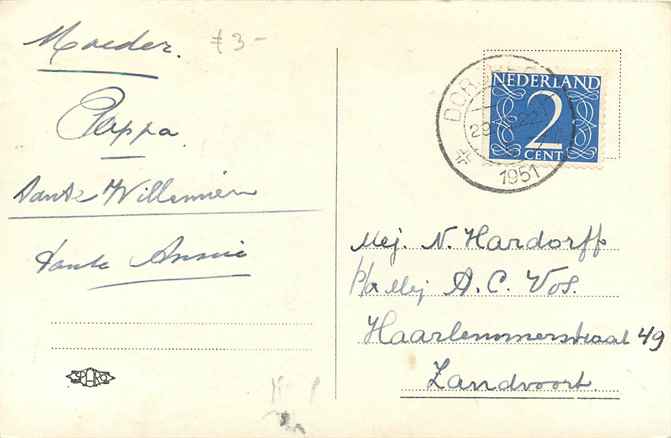 Moeder.
Pappa.
Tante Willemien
Tante Annie
NEDERLAND
2
CENT
1951
Mej. N. Hardorff
p/a Mej A. C. Vos.
Haarlemmerstraat 49
Zandvoort.